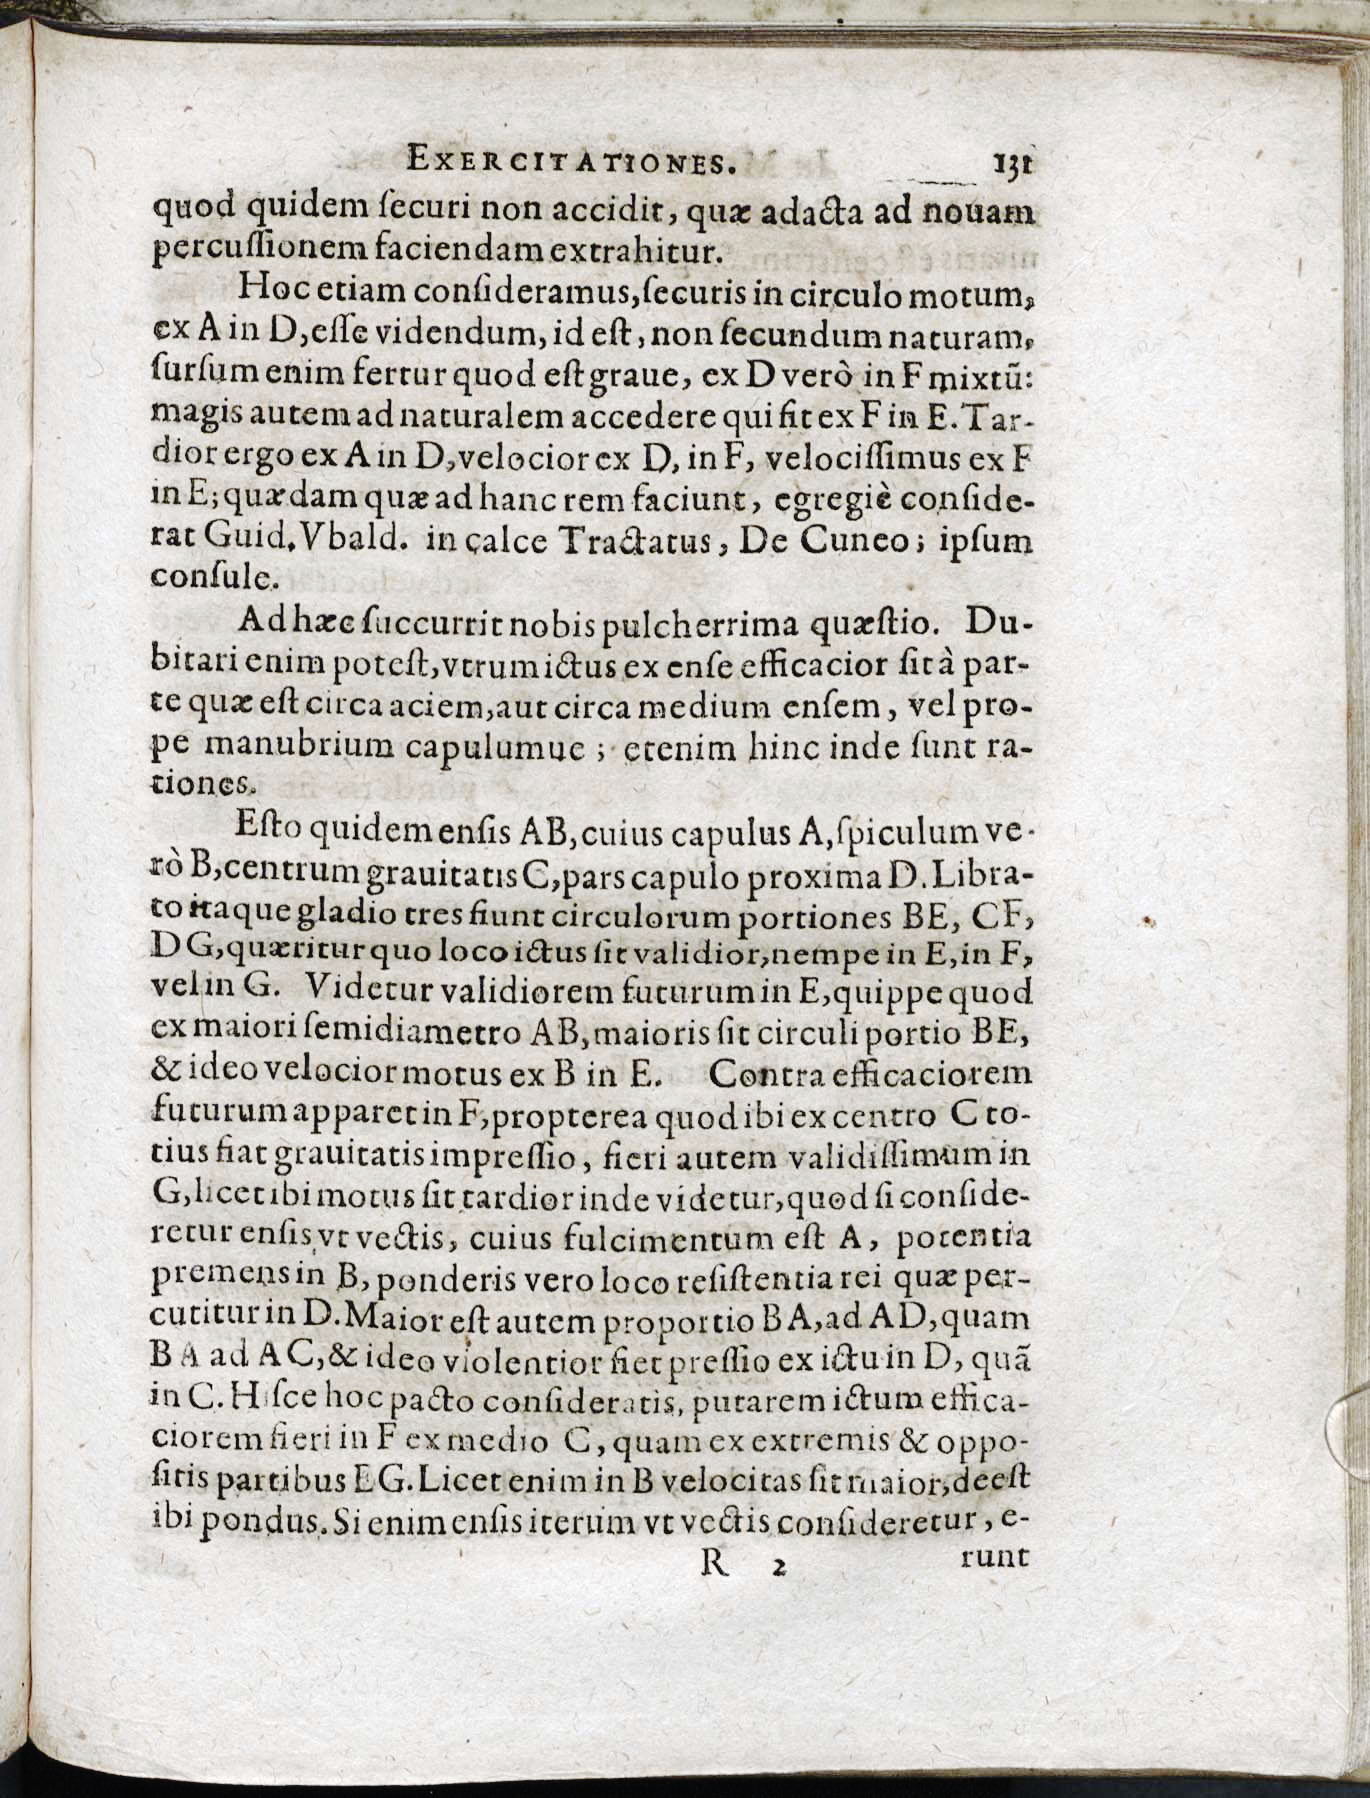 EXERCITATIONES. 131
quod quidem ſecuri non accidit, quæ adacta ad nouam
percuſſionem faciendam extrahitur.
Hoc etiam conſideramus, ſecuris in circulo motum,
ex A in D, eſſe videndum, id eſt, non ſecundum naturam,
ſurſum enim fertur quod eſt graue, ex D verò in F mixtū:
magis autem ad naturalem accedere qui fit ex F in E. Tar-
dior ergo ex A in D, velocior ex D, in F, velociſſimus ex F
in E; quædam quæ ad hanc rem faciunt, egregiè conſide-
rat Guid. Vbald. in calce Tractatus, De Cuneo; ipſum
conſule.
Ad hæc ſuccurrit nobis pulcherrima quæſtio. Du-
bitari enim poteſt, vtrum ictus ex enſe efficacior ſit à par-
te quæ eſt circa aciem, aut circa medium enſem, vel pro-
pe manubrium capulumue; etenim hinc inde ſunt ra-
tiones.
Eſto quidem enſis AB, cuius capulus A, ſpiculum ve-
rò B, centrum grauitatis C, pars capulo proxima D. Libra-
to itaque gladio tres fiunt circulorum portiones BE, CF,
DG, quæritur quo loco ictus ſit validior, nempe in E, in F,
vel in G. Videtur validiorem futurum in E, quippe quod
ex maiori ſemidiametro AB, maioris ſit circuli portio BE,
& ideo velocior motus ex B in E. Contra efficaciorem
futurum apparet in F, propterea quod ibi ex centro C to-
tius fiat grauitatis impreſſio, fieri autem validiſſimum in
G, licet ibi motus ſit tardior inde videtur, quod ſi conſide-
retur enſis vt vectis, cuius fulcimentum eſt A, potentia
premens in B, ponderis vero loco reſiſtentia rei quæ per-
cutitur in D. Maior eſt autem proportio BA, ad AD, quam
BA ad AC, & ideo violentior fiet preſſio ex ictu in D, quā
in C. Hiſce hoc pacto conſideratis, putarem ictum effica-
ciorem fieri in F ex medio C, quam ex extremis & oppo-
ſitis partibus EG. Licet enim in B velocitas ſit maior, deeſt
ibi pondus. Si enim enſis iterum vt vectis conſideretur, e-
R 2 runt